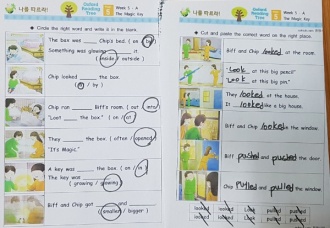 나를 따르라!
Oxford
Reading
Tree
Week 5 - A
The Magic Key
Circle the right word and write it in the blank.
The box was Chip's bed. ( on / by )
Something was glowing it.
( inside / outside )
Chip looked the box.
( / by )
Chip ran Biff's room. ( out / into )
"Loot the box." ( on / at )
They the box ( often / opened )
"It's Magic."
A key was the box ( on / in )
The key was
( growing / glowing )
Biff and Chip got and
( smaller / bigger )
나를 따르라!
Oxford
Reading
Tree
Week 5 - A
The Magic Key
Cut and paste the correct word on the right place.
Biff and Chip looked at the room.
"Look at this big pencil"
"Look at this big pin."
They looked at the house.
It looked like a big house.
Biff and Chip looked in the window.
Biff pushed and pushed the door.
Chip pulled and pulled the window.
looked looked Look pulled pushed
looked looked Look pulled pushed